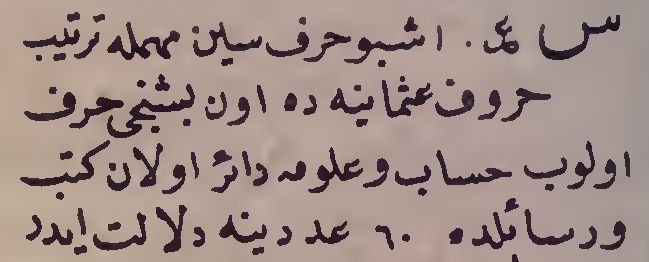 س ع . اشبو حرف سین مهمله ترتیب
حروف عثمانیه ده اون بشنجی حرف
اولوب حساب و علومه دائر اولان کتب
و رسائلده ٦٠ عددینه دلالت ایدر